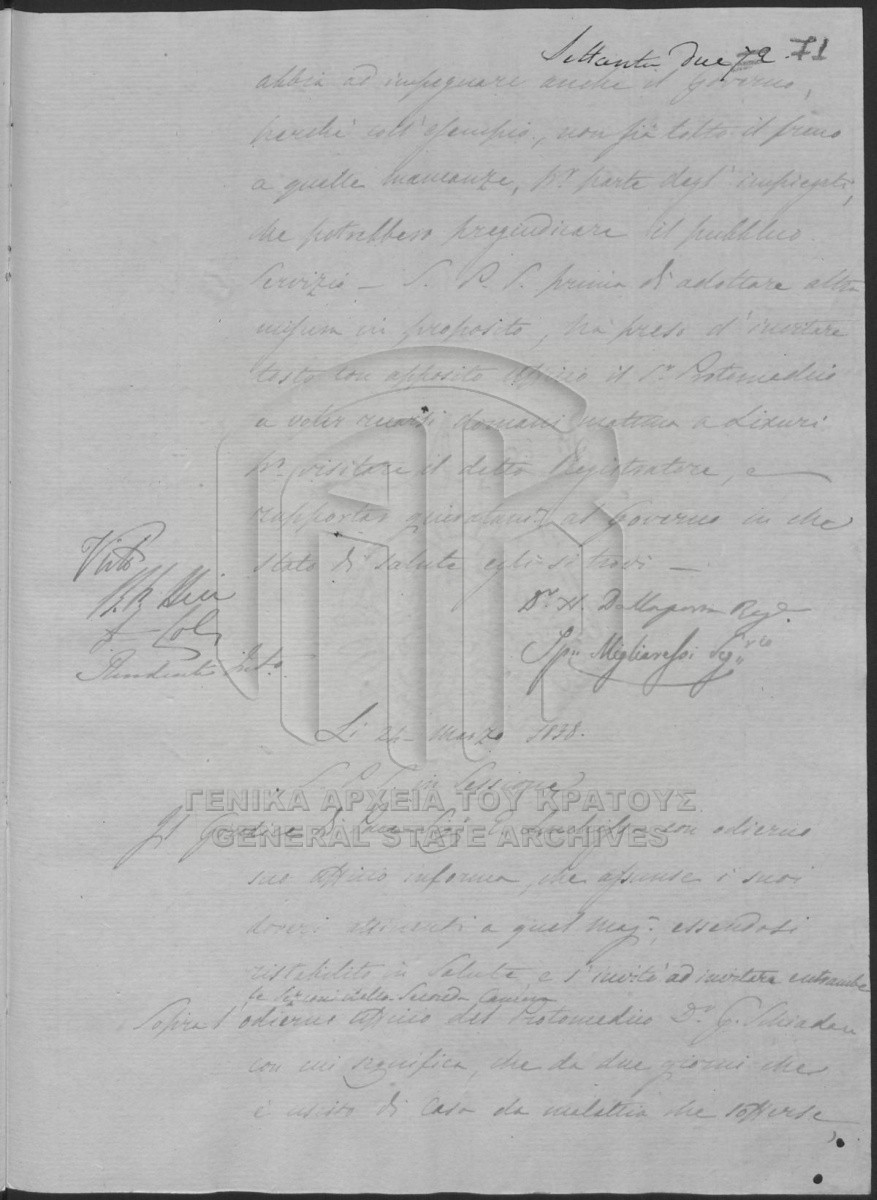 Settanta due 72. 71
abbia ad impegnare anche il Governo,
perchè coll'esempio, non sia tolto il freno
a quelle mancanze, pr. parte degl'impiegati,
che potrebbero pregiudicare il pubblico
Servizio — S. P. S. prima di adottare altra
misura in proposito, ha preso d'invitare
tosto con apposito Officio il Sr. Protomedico
a voler recarsi domani mattina a Lixuri
pr. visitare il detto Registratore, e
rapportar al Governo in che
stato di salute egli si trovi —
Visto
Dr. N. Dallaporta Regg.
Residente
Spn. Migliaressi Segrio
Li 24 marzo 1838.
S. P. S. in Sessione
ΓΕΝΙΚΑ ΑΡΧΕΙΑ ΤΟΥ ΚΡΑΤΟΥΣ
GENERAL STATE ARCHIVES
Il Giudice di Pace con odierno
suo Officio informa, che assunse i suoi
doveri attinenti a quel mag., essendosi
ristabilito in Salute e s'invitò ad invitare entrambe
le Sezioni della Seconda Camera
Sopra l'odierno Officio del Protomedico Dr. G.
con cui significa, che da due giorni che
è uscito di Casa da malattia che sofferse